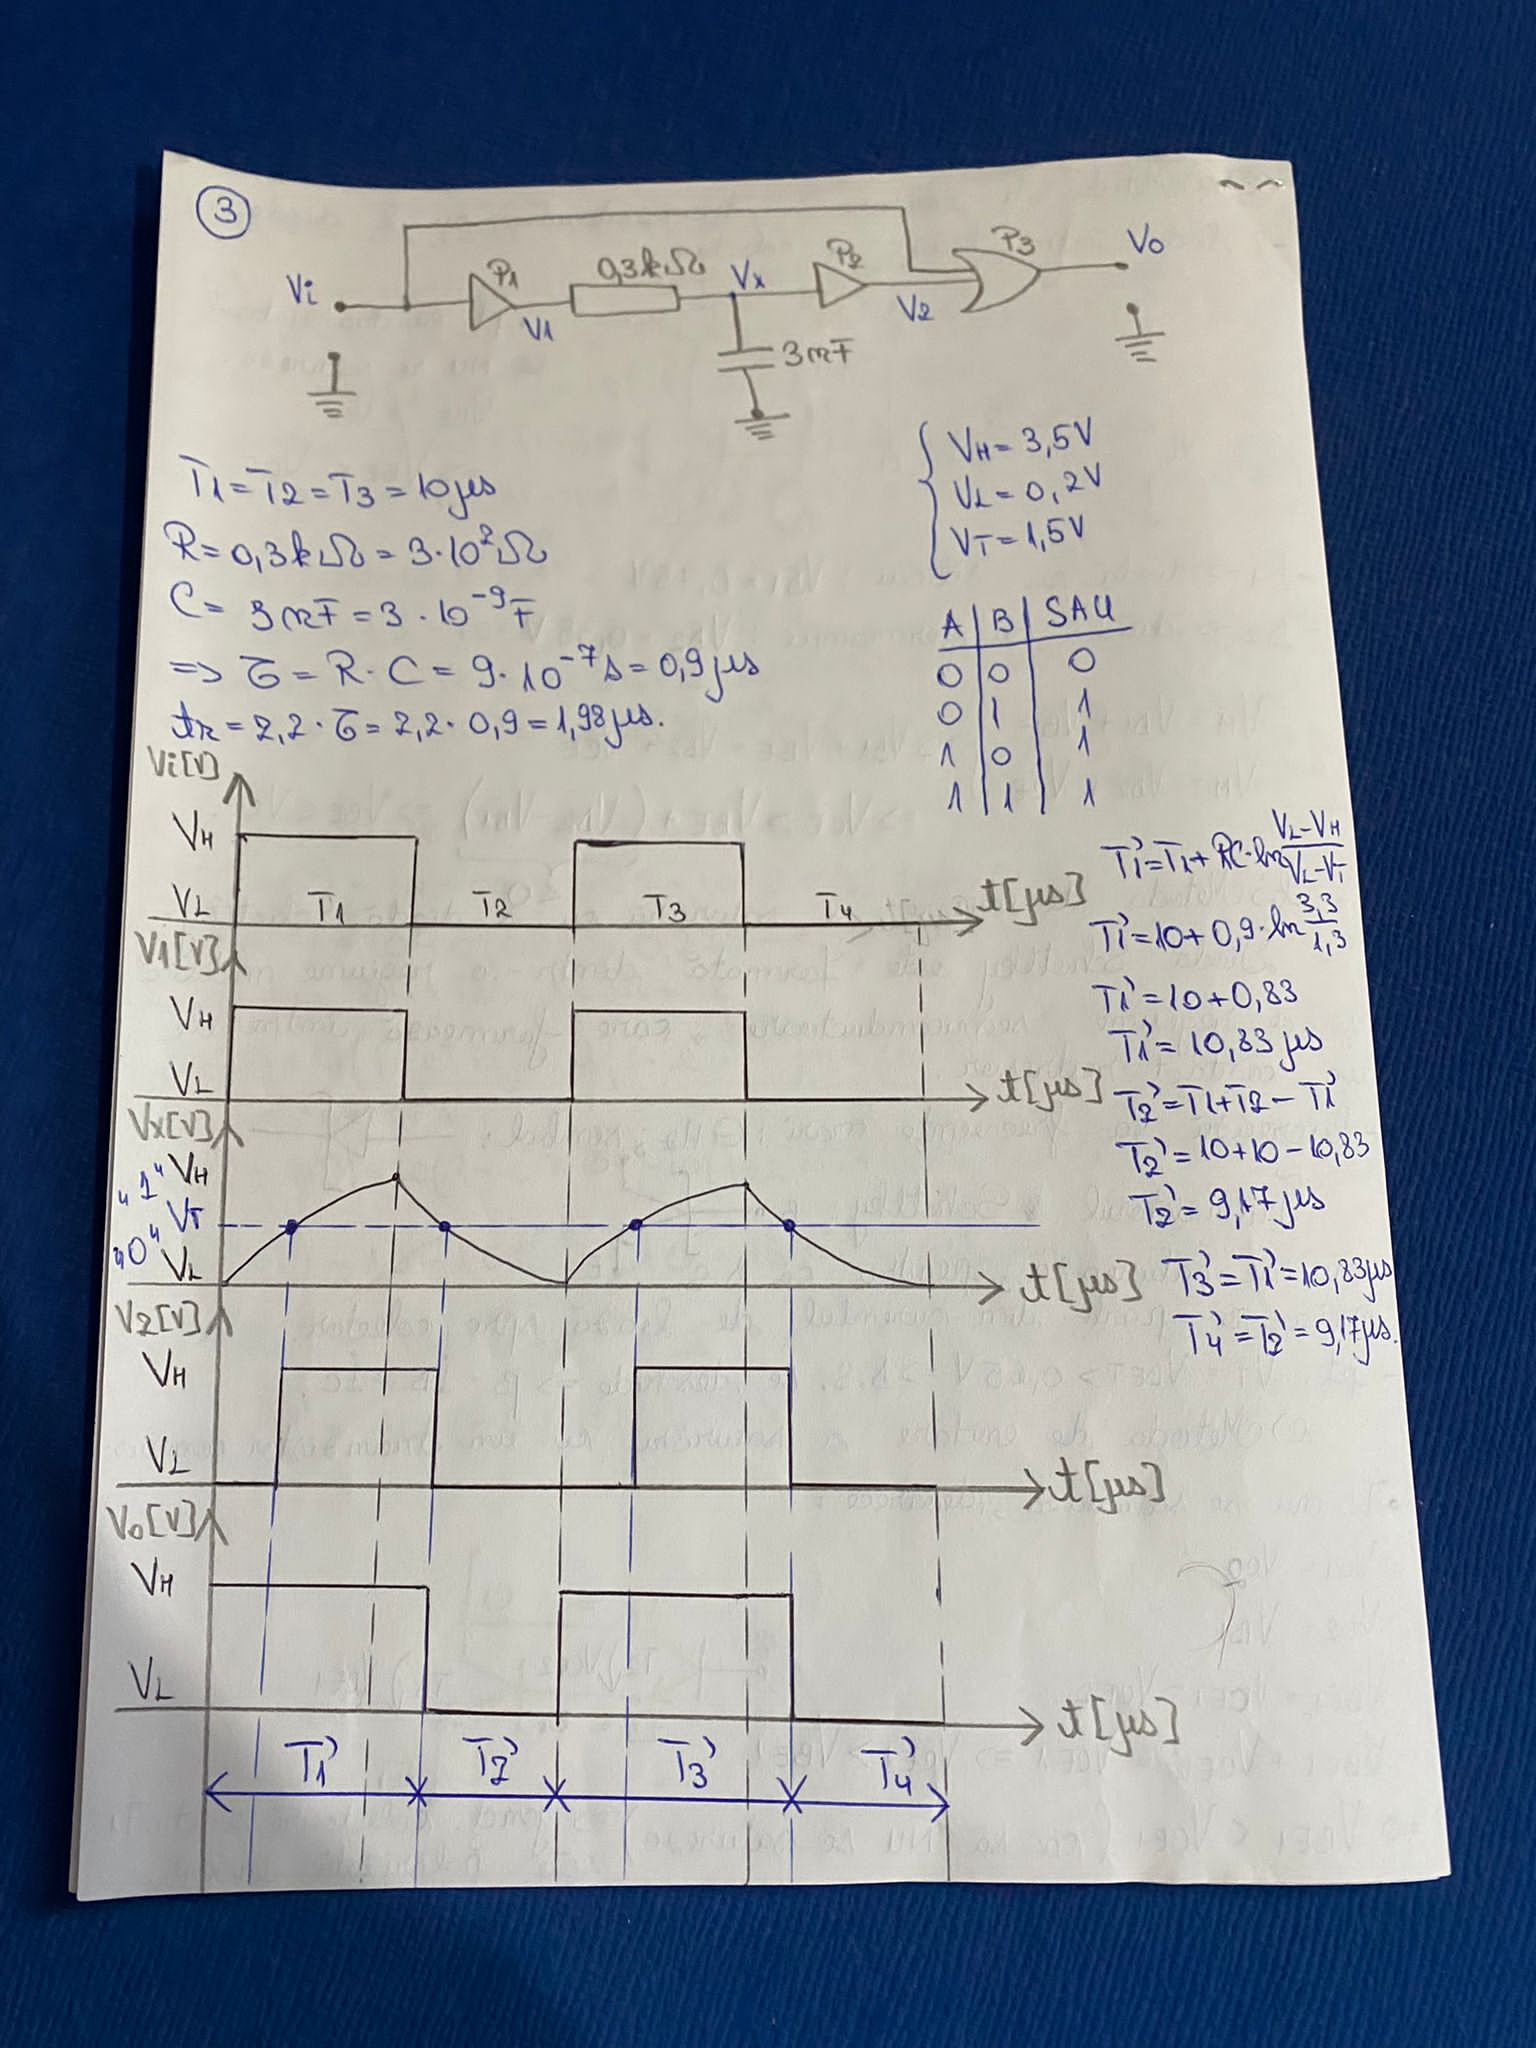 3
Vi
P1
V1
0,3kΩ
Vx
3nF
P2
V2
P3
Vo
T1=T2=T3=10μs
R=0,3kΩ=3·10²Ω
C= 3nF=3·10⁻⁹F
=> τ=R·C=9·10⁻⁷s=0,9μs
tr=2,2·τ=2,2·0,9=1,98μs.
VH=3,5V
VL=0,2V
VT=1,5V
A B SAU
0 0 0
0 1 1
1 0 1
1 1 1
Vi[V]
VH
VL
T1 T2 T3 T4
t[μs]
V1[V]
VH
VL
t[μs]
Vx[V]
"1" VH
VT
"0" VL
t[μs]
V2[V]
VH
VL
t[μs]
Vo[V]
VH
VL
t[μs]
T1' T2' T3' T4'
T1'=T1+RC·ln (VL-VH)/(VL-VT)
T1'=10+0,9·ln 3,3/1,3
T1'=10+0,83
T1'=10,83μs
T2'=T1+T2-T1'
T2'=10+10-10,83
T2'=9,17μs
T3'=T1'=10,83μs
T4'=T2'=9,17μs.